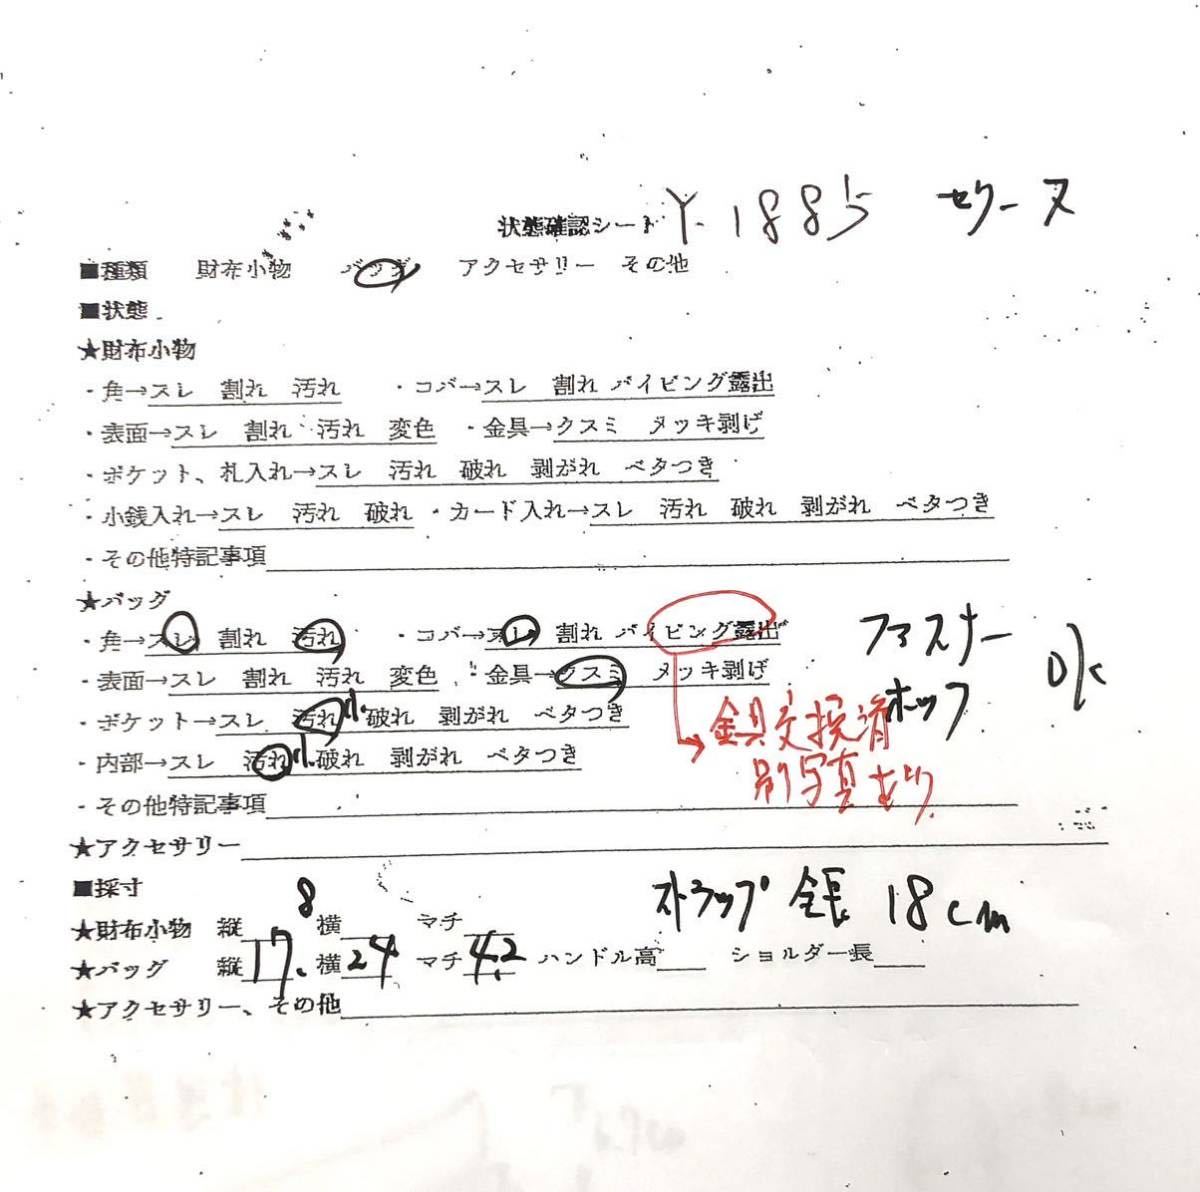 状態確認シート Y-1885 セリーヌ
■種類 財布小物 バッグ アクセサリー その他
■状態
★財布小物
・角→スレ 割れ 汚れ ・コバ→スレ 割れ パイピング露出
・表面→スレ 割れ 汚れ 変色 ・金具→クスミ メッキ剥げ
・ポケット、札入れ→スレ 汚れ 破れ 剥がれ ベタつき
・小銭入れ→スレ 汚れ 破れ ・カード入れ→スレ 汚れ 破れ 剥がれ ベタつき
・その他特記事項
★バッグ
・角→スレ 割れ 汚れ ・コバ→スレ 割れ パイピング露出 ファスナー
・表面→スレ 割れ 汚れ 変色 ・金具→クスミ メッキ剥げ OK
・ポケット→スレ 汚れ 小 破れ 剥がれ ベタつき 金具交換済 ホック
・内部→スレ 汚れ 小 破れ 剥がれ ベタつき 別写真あり
・その他特記事項
★アクセサリー
■採寸 ストラップ全長 18cm
★財布小物 縦 横 マチ
★バッグ 縦17.8 横24 マチ4.2 ハンドル高 ショルダー長
★アクセサリー、その他